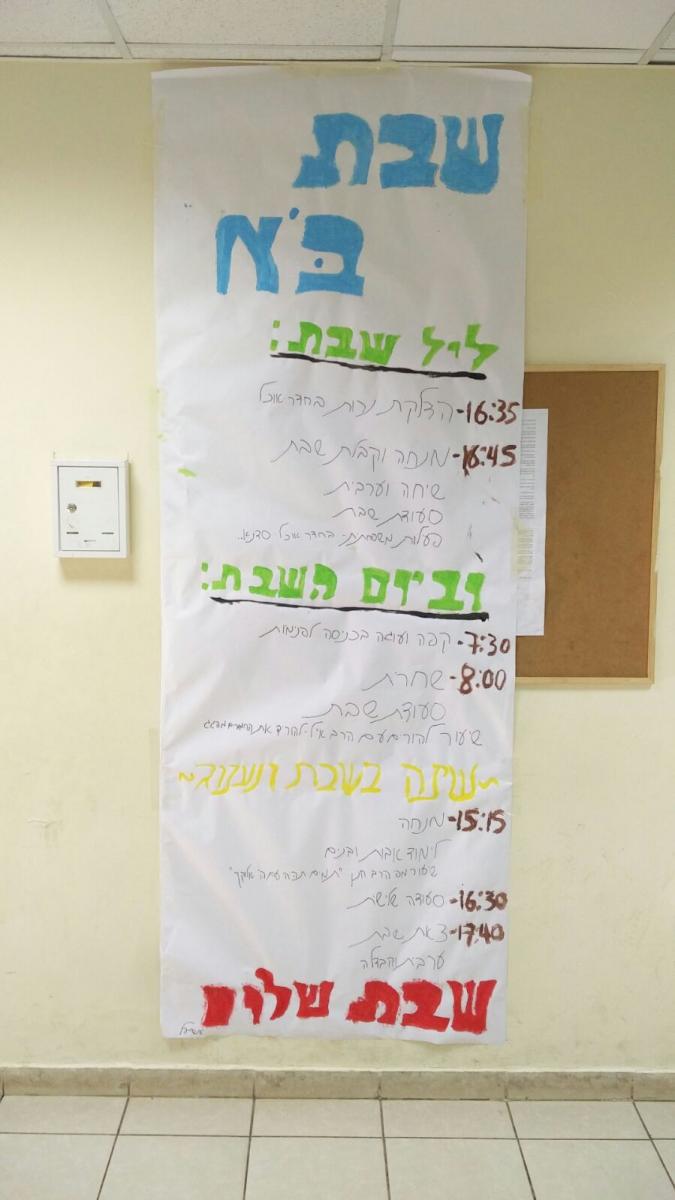 שבת
בא'
ליל שבת:
16:35- הדלקת נרות בחדר אוכל
16:45- מנחה וקבלת שבת
שיחה וערבית
סעודת שבת
פעילות משפחתית- בחדר אוכל סדנא..
וביום השבת:
7:30- קפה ועוגה בכניסה לפנימיות
8:00- שחרית
סעודת שבת
שיעור להורים עם הרב אילי- להוריד את
~שינה בשבת תענוג~
15:15- מנחה
לימוד אבות ובנים
שיעור מפי הרב חנן "תמים תהיה עם ה' אלקיך"
16:30- סעודה שלישית
17:40- צאת שבת
ערבית והבדלה
שבת שלום